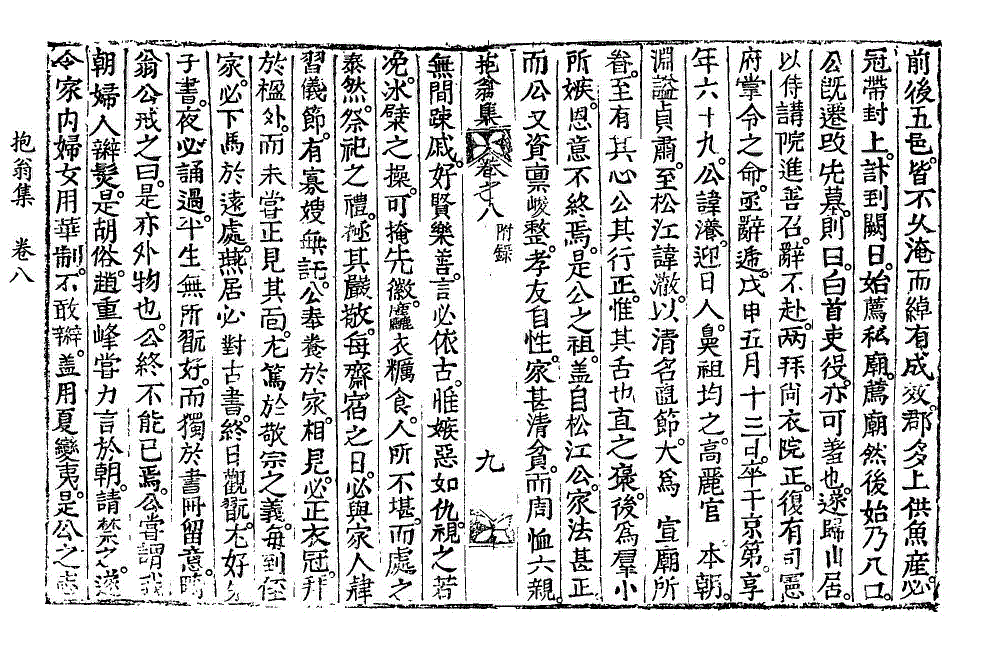 前後五邑。皆不久淹而綽有成效。郡多上供魚産。必
冠帶封上。計到闕日。始薦私廟。薦廟然後始乃入口。
公旣遷改先墓。則曰。白首吏役。亦可羞也。遂歸山居。
以侍講院進善召。辭不赴。兩拜尙衣院正。復有司憲
府掌令之命。亟辭遞。戊申五月十三日。卒于京第。享
年六十九。公諱瀁。迎日人。鼻祖均之。高麗官　本朝。
淵諡貞肅。至松江諱澈。以淸名直節。大爲　宣廟所
眷。至有其心公其行正。惟其舌也直之褒。後爲羣小
所嫉。恩意不終焉。是公之祖。盖自松江公。家法甚正。
而公又資稟峻整。孝友自性。家甚淸貧。而周恤六親。
抱翁集　卷之八　附錄　九
無間踈戚。好賢樂善。言必依古。惟嫉惡如仇。視之若
浼。冰檗之操。可掩先徽。麤衣糲食。人所不堪。而處之
泰然。祭祀之禮。極其嚴敬。每齋宿之日。必與家人肄
習儀節。有寡嫂無託。公奉養於家。相見。必正衣冠。拜
於楹外。而未嘗正見其面。尤篤於敬宗之義。每到侄
家。必下馬於遠處。燕居必對古書。終日觀翫。尤好
子書。夜必誦過。平生無所翫好。而獨於書冊留意。
翁公戒之曰。是亦外物也。公終不能已焉。公嘗謂我
朝婦人辮髮。是胡俗。趙重峰嘗力言於朝。請禁之。遂
令家內婦女用華制。不敢辮。盖用夏變夷。是公之志
抱翁集　卷八